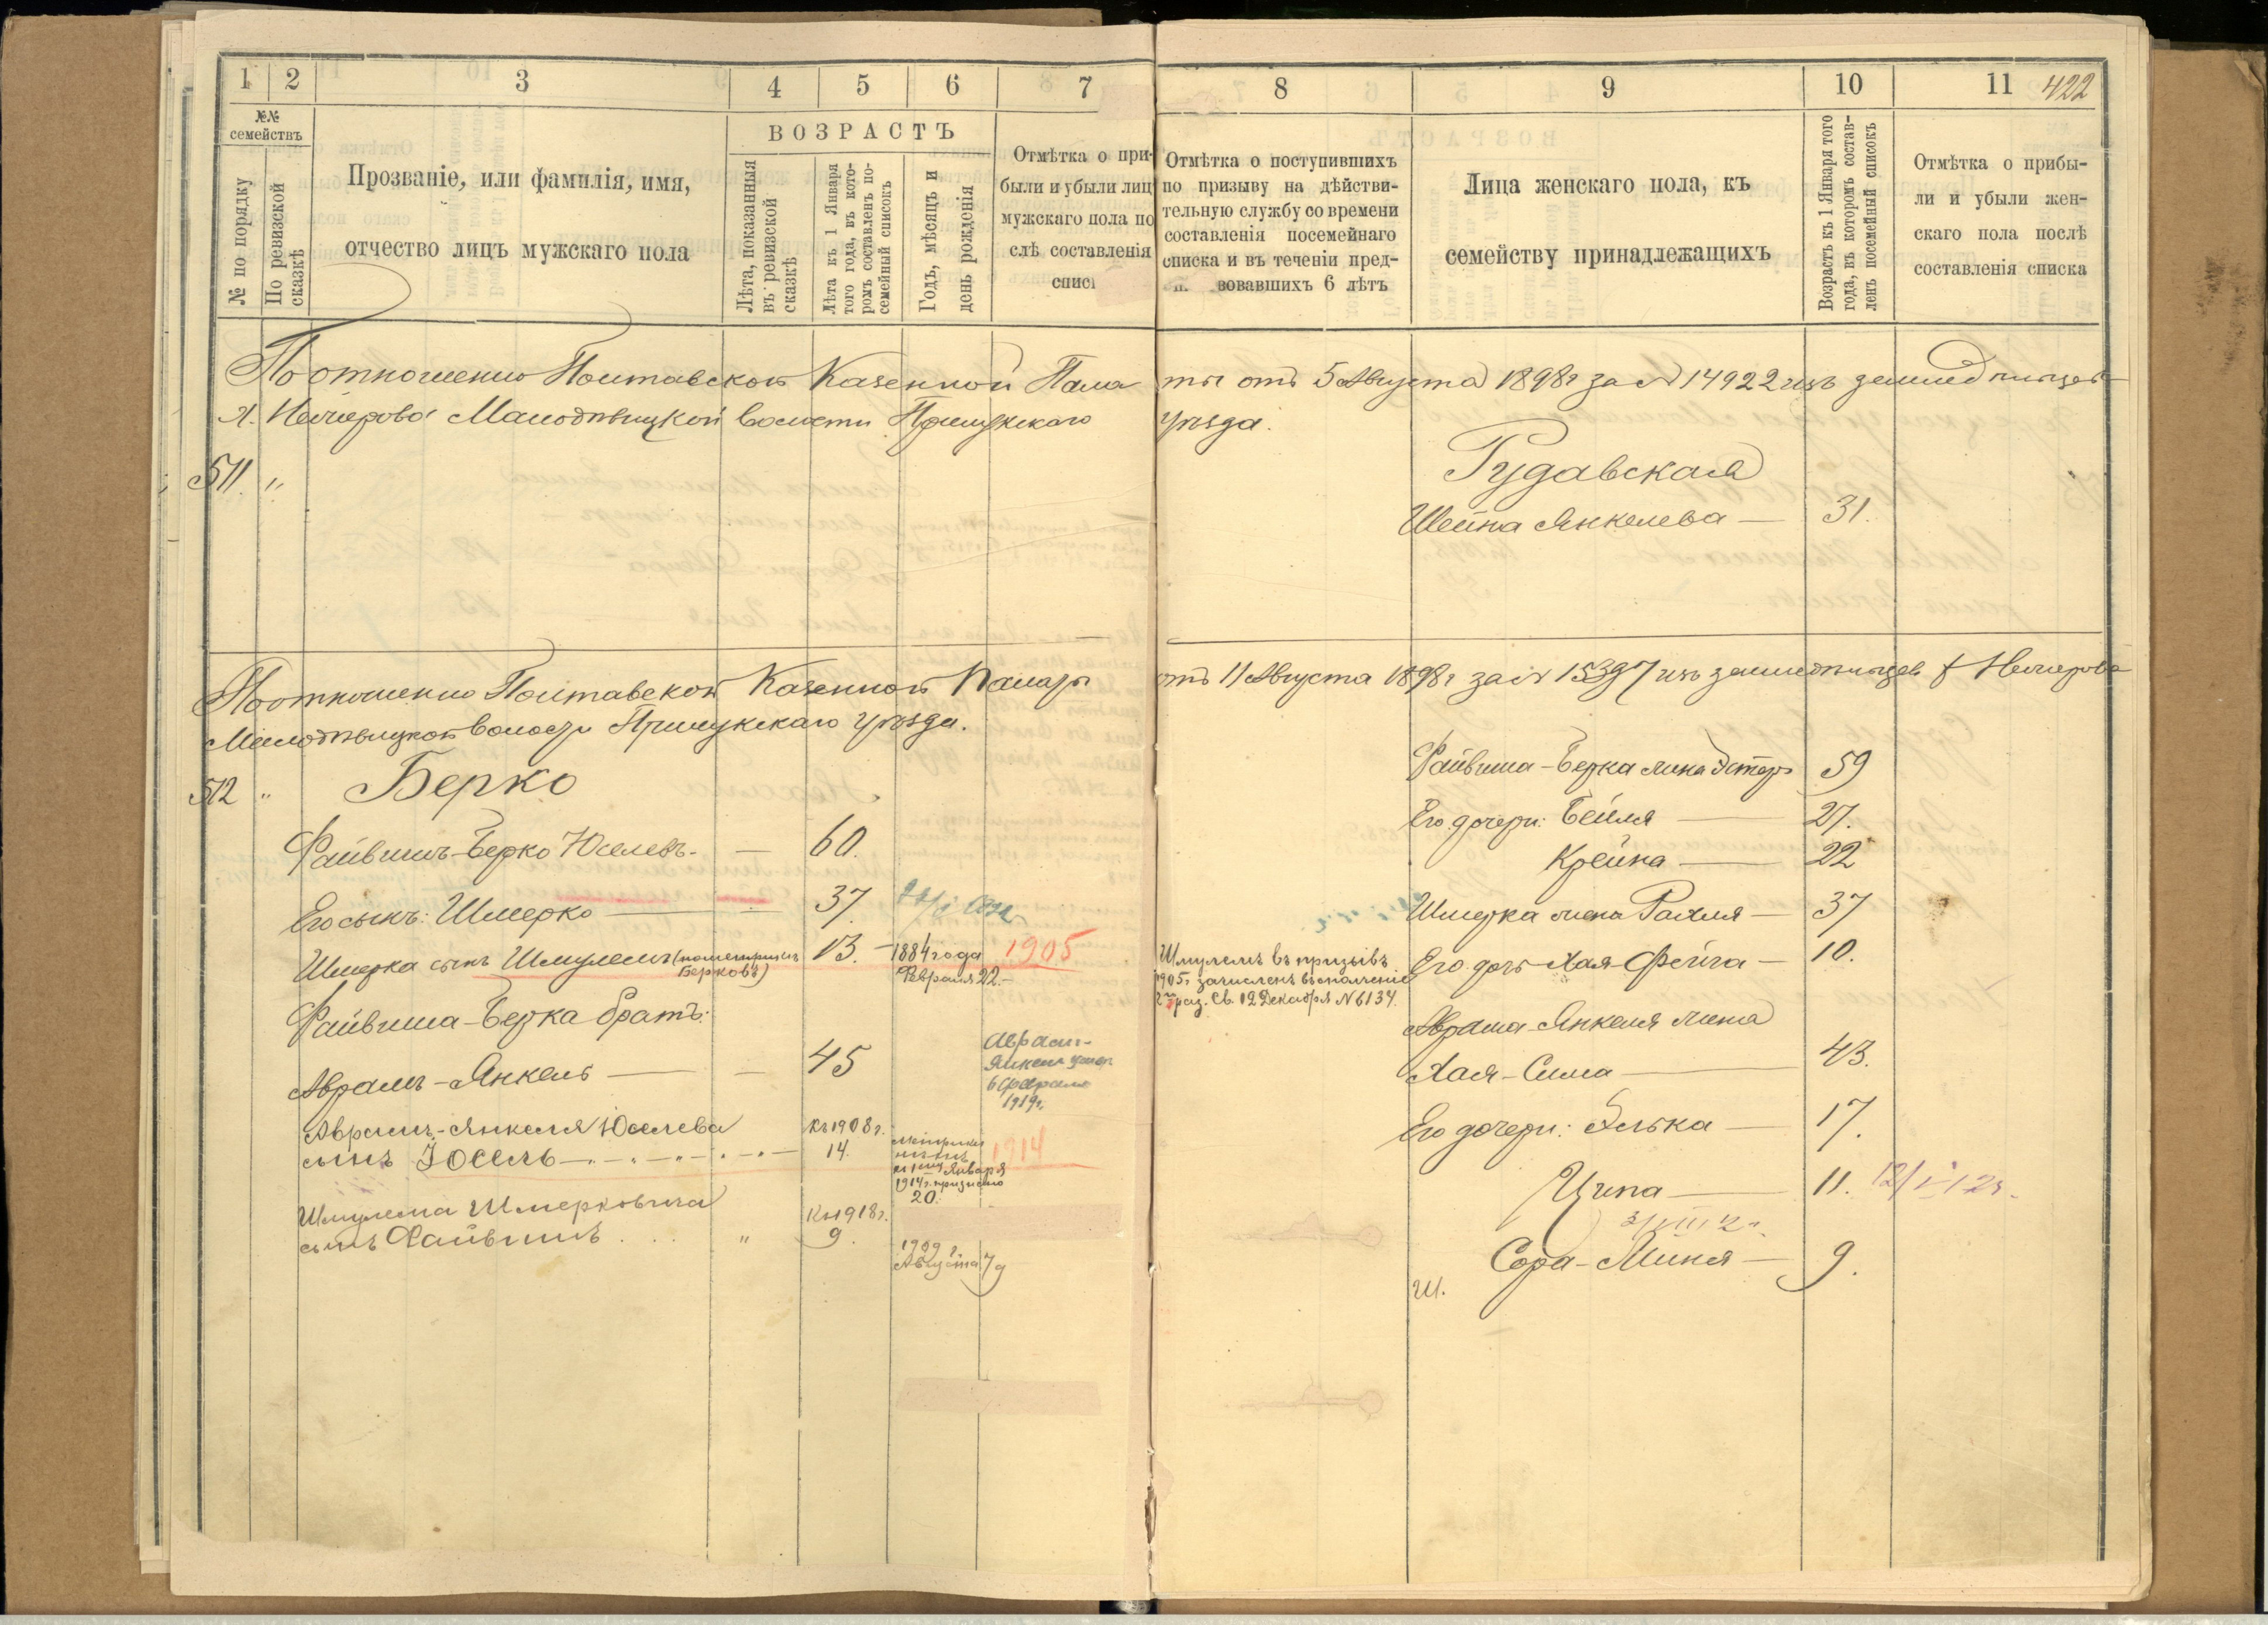 1 2 3 4 5 6 7
№№ семействъ
№ по порядку
По ревизской сказкѣ
Прозваніе, или фамилія, имя,
отчество лицъ мужскаго пола
ВОЗРАСТЪ
Лѣта, показанныя
въ ревизской
сказкѣ
Лѣта къ 1 Января
того года, въ кото-
ромъ составленъ по-
семейный списокъ
Годъ, мѣсяцъ и
день рожденія
Отмѣтка о при-
были и убыли лиц
мужскаго пола по
слѣ составленія
спис
8 9 10 11 422
Отмѣтка о поступившихъ
по призыву на дѣйстви-
тельную службу со времени
составленія посемейнаго
списка и въ теченіи пред-
вовавшихъ 6 лѣтъ
Лица женскаго пола, къ
семейству принадлежащихъ
Возрастъ къ 1 Января того
года, въ которомъ состав-
ленъ посемейный списокъ
Отмѣтка о прибы-
ли и убыли жен-
скаго пола послѣ
составленія списка
По отношенію Полтавской Казенной Пала ты отъ 5 Августа 1898 г за № 14922 изъ земледѣльцевъ
Малодѣвицкой волости Прилукскаго уѣзда.
511 "
Рудавская
Шейна Янкелева — 31.
По отношенію Полтавской Казенной Палаты отъ 11 Августа 1898 г за № 15397 изъ земледѣльцевъ
Малодѣвицкой волости Прилукскаго уѣзда.
512 " Берко
Файвишъ-Берко Юселевъ — 60.
Его сынъ: Шмерко — 37.
Шмерка сынъ Шмулемъ (по метрикамъ 13. 1884 года 1905
Берковъ) Февраля 22.
Файвиша-Берка братъ:
Аврамъ-Янкель — 45
Аврам-
Янкель умер
6 Февраля
1919 г.
Аврамъ-Янкеля Юселева къ 1908 г.
сынъ Іосель 14.
метрики
нѣтъ
къ 1му Января
1914 г. признано
20.
1914
Шмулема Шмерковича къ 1918 г.
сынъ Файвишъ . . . " 9.
1909 г.
Августа 7 д
Шмулемъ въ призывъ
1905 г. зачисленъ въ ополченіе
2 раз. Св. 12 Декабря № 6134.
Файвиша-Берка жена Эстеръ 59
Его дочери: Бейля — 27.
Крейна — 22
Шмерка жена Рахля — 37
Его дочь Хая-Фейга — 10.
Аврама-Янкеля жена
Хая-Сима — 43.
Его дочери: Элька — 17.
Ципа — 11.
Сора-Миня — 9.
Ш.